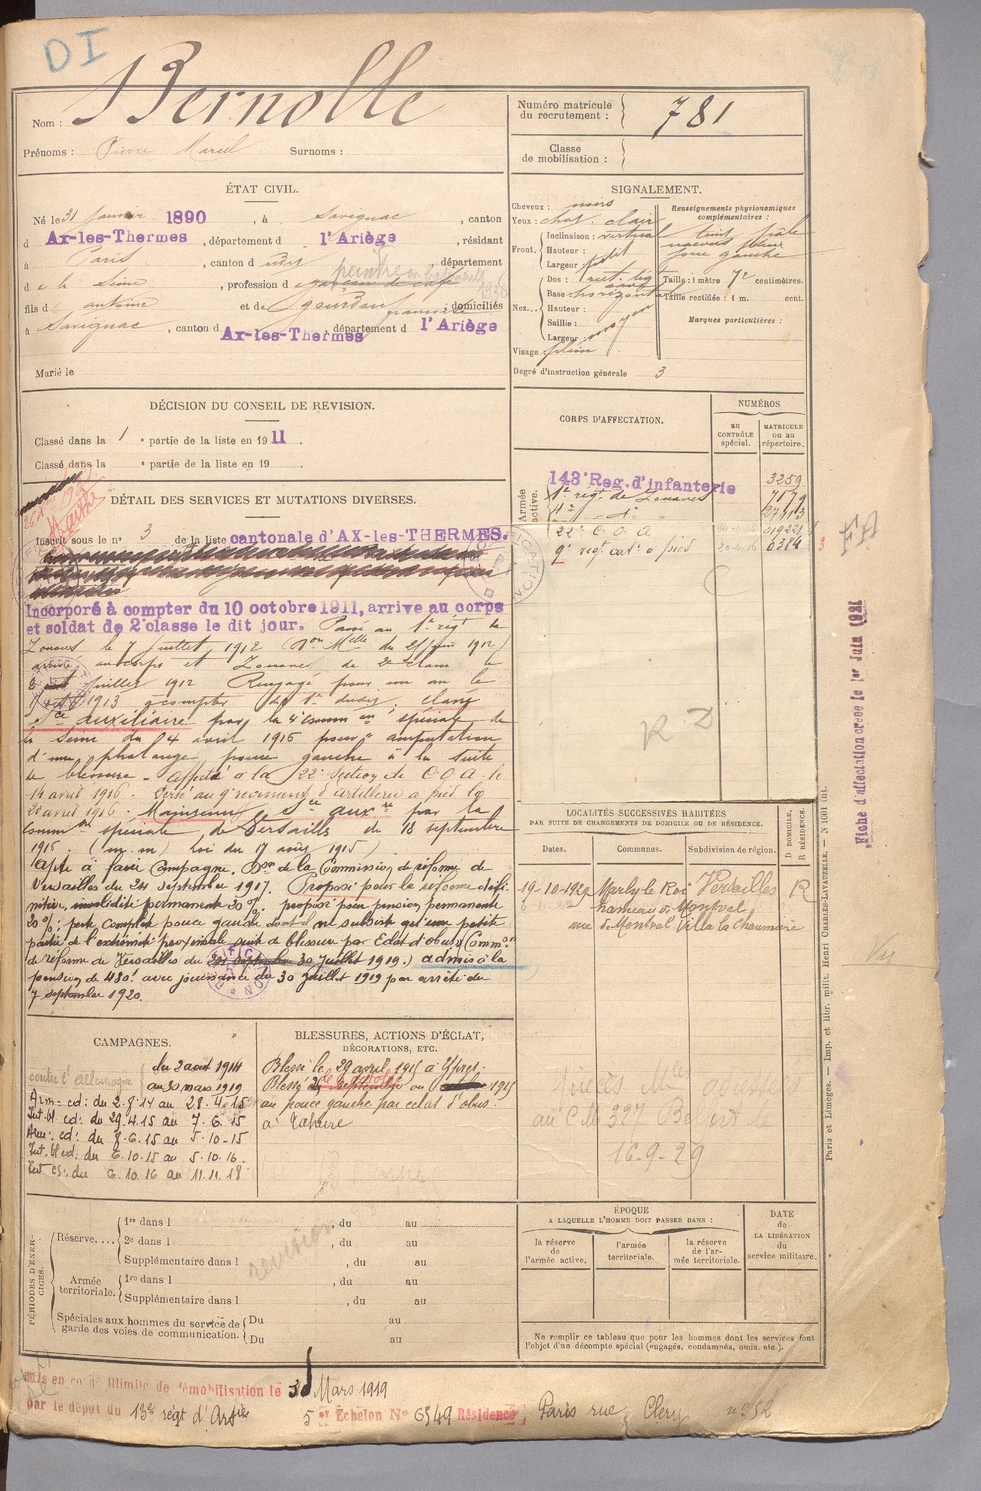 DI
Nom : Bernolle
Prénoms : Pierre Marcel Surnoms :
Numéro matricule du recrutement : 781
Classe de mobilisation :
ÉTAT CIVIL.
Né le 31 Janvier 1890, à Savignac, canton
d Ax-les-Thermes, département d l'Ariège, résidant
à Paris, canton d udit, département
d e la Seine, profession d garçon de café peintre en bâtiments
fils d antoine et de gourdon françoise, domiciliés
à Savignac, canton d Ax-les-Thermes département d l'Ariège
Marié le
SIGNALEMENT.
Cheveux : noirs
Yeux : chat. clair
Front. Inclinaison : vertical
Hauteur :
Largeur petit
Nez... Dos : rect. lig
Base : horizontal
Hauteur :
Saillie :
Largeur moyen
Visage plein
Renseignements physionomiques complémentaires :
teint pâle
naevus
joue gauche
Taille : 1 mètre 72 centimètres.
Taille rectifiée : 1 m. cent.
Marques particulières :
Degré d'instruction générale 3
DÉCISION DU CONSEIL DE REVISION.
Classé dans la 1 e partie de la liste en 1911.
Classé dans la e partie de la liste en 19
CORPS D'AFFECTATION.
NUMÉROS
au CONTRÔLE spécial.
MATRICULE ou au répertoire.
Armée active.
143e Reg. d'infanterie 3259
1er régt de Zouaves 7579
4e do
22e C O A
9e régt art. à pied 6384
R D
DÉTAIL DES SERVICES ET MUTATIONS DIVERSES.
Inscrit sous le n° 3 de la liste cantonale d'AX-les-THERMES.
Incorporé à compter du 10 octobre 1911, arrive au corps
et soldat de 2e classe le dit jour. Passé au 1er régt de
Zouaves le 7 juillet 1912 (Don Mlle du 25 juin 1912)
arrivé au corps et Zouave de 2e classe le
8 juillet 1912 Rengagé pour un an le
1913 à compter du 1er dudit, classé
Sce auxiliaire par la 4e Comm on spéciale de
la Seine du 4 avril 1916 pour amputation
d'une phalange pouce gauche à la suite
de blessure - affecté à la 22e section de C O A le
14 avril 1916. Versé au 9e régiment d'artillerie à pied le
20 avril 1916. Maintenu Sce auxre par la
Comm on spéciale de Versailles du 18 septembre
1916. (m. m. Loi du 17 août 1915)
Apte à faire Campagne. Don de la Commission de réforme de
Versailles du 24 septembre 1917. Proposé pour la réforme défi-
nitive, invalidité permanente 20 %. proposé pour pension permanente
20 %; perte complète pouce gauche dont il ne subsiste qu'une petite
partie de l'extrémité proximale suite de blessure par éclat d'obus (Comm on
de réforme de Versailles du 30 juillet 1919.) admis à la
pension de 480f avec jouissance du 30 juillet 1919 par arrêté du
7 septembre 1920.
LOCALITÉS SUCCESSIVES HABITÉES
PAR SUITE DE CHANGEMENTS DE DOMICILE OU DE RÉSIDENCE.
Dates. Communes. Subdivision de région. D DOMICILE, R RÉSIDENCE
19-10-1929 Marly le Roi Versailles R
hameau de Montval
rue de Montval Villa la Chaumière
au CM 327 Belfort le
16-9-29
CAMPAGNES.
contre l'allemagne du 2 août 1914
au 30 mars 1919
Arm: cd: du 2.8.14 au 28.4.15
Int. bl cd: du 29.4.15 au 7.6.15
Arm: cd: du 8.6.15 au 5.10.15
Int. bl cd: du 6.10.15 au 5.10.16
Int cs: du 6.10.16 au 11.11.18
BLESSURES, ACTIONS D'ÉCLAT, DÉCORATIONS, ETC.
Blessé le 29 avril 1915 à Ypres.
Blessé 1915
au pouce gauche par éclat d'obus.
à Tahure
revision
PÉRIODES D'EXERCICES.
Réserve....
1re dans l , du au
2e dans l , du au
Supplémentaire dans l , du au
Armée territoriale.
1re dans l , du au
Supplémentaire dans l , du au
Spéciales aux hommes du service de garde des voies de communication.
Du au
Du au
ÉPOQUE
A LAQUELLE L'HOMME DOIT PASSER DANS :
la réserve de l'armée active.
l'armée territoriale.
la réserve de l'armée territoriale.
DATE de LA LIBÉRATION du service militaire.
Ne remplir ce tableau que pour les hommes dont les services font
l'objet d'un décompte spécial (engagés, condamnés, omis. etc.).
Mis en congé illimité de démobilisation le 30 Mars 1919
par le dépôt du 13e régt d'Artie 5e Echelon N° 6549 Résidence Paris rue Clery n° 52
Fiche d'affectation créée le 1er Juin 1921
Paris et Limoges. — Imp. et libr. milit. Henri CHARLES-LAVAUZELLE. — N 1001 int.
Vu